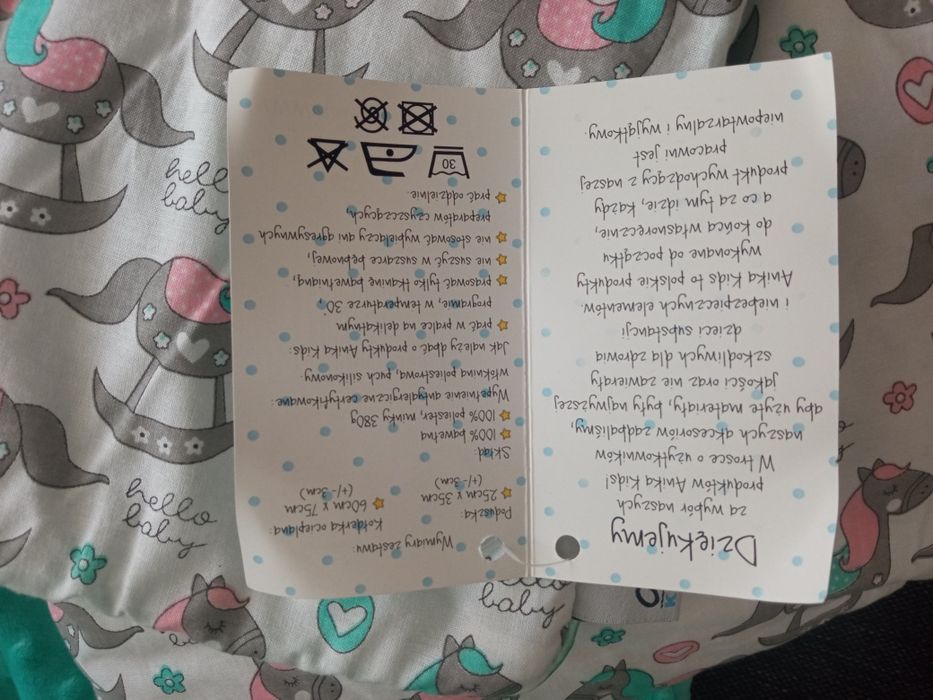 Dziękujemy
za wybór naszych
produktów Anika Kids!
W trosce o użytkowników
naszych akcesoriów zadbaliśmy,
aby użyte materiały, były najwyższej
jakości oraz nie zawierały
szkodliwych dla zdrowia
dzieci substancji
i niebezpiecznych elementów.
Anika Kids to polskie produkty
wykonane od początku
do końca własnoręcznie,
a co za tym idzie, każdy
produkt wychodzący z naszej
pracowni jest
niepowtarzalny i wyjątkowy.
Wymiary zestawu:
Poduszka:
25cm x 35cm
(+/- 3cm)
Kołderka ocieplana:
60cm x 75cm
(+/- 3cm)
Skład:
100% bawełna
100% poliester, minky 380g
Wypełnienie antyalergiczne certyfikowane:
włóknina poliestrowa, puch silikonowy
Jak należy dbać o produkty Anika Kids:
prać w pralce na delikatnym
programie, w temperaturze 30°,
prasować tylko tkaninę bawełnianą,
nie suszyć w suszarce bębnowej,
nie stosować wybielaczy ani agresywnych
preparatów czyszczących,
prać oddzielnie.
30
hello
baby
hello
baby
hello
baby